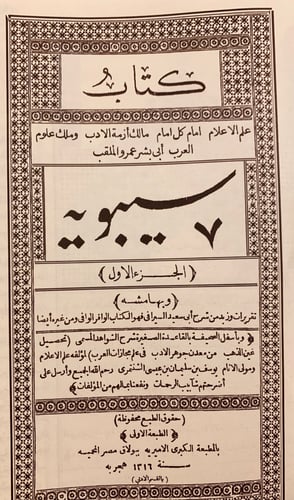 كتاب
علم الاعلام امام كل امام مالك أزمة الادب وملك علوم
العرب أبى بشر عمرو الملقب
سيبويه
﴿ الجزء الاول ﴾
﴿ وبهامشه ﴾
تقريرات وزبد من شرح أبى سعيد السيرافى فهو الكتاب الوافر الوافى ومن غيره أيضا
﴿ وبأسفل الصحيفة بالقاعدة الصغيرة شرح الشواهد المسمى ﴿ تحصيل
عين الذهب من معدن جوهر الادب فى علم مجازات العرب ﴾ لمؤلفه علم الاعلام
ومولى الانام يوسف بن سليمان بن عيسى الشنتمرى رحم الله الجميع وأرسل على
أضرحتهم شآبيب الرحمات ونفعنا بما لهم من المؤلفات ﴾
﴿ حقوق الطبع محفوظة ﴾
﴿ الطبعة الاولى ﴾
بالمطبعة الكبرى الاميرية ببولاق مصر المحميه
سنة ١٣١٦ هجريه
﴿ بالقسم الادبى ﴾